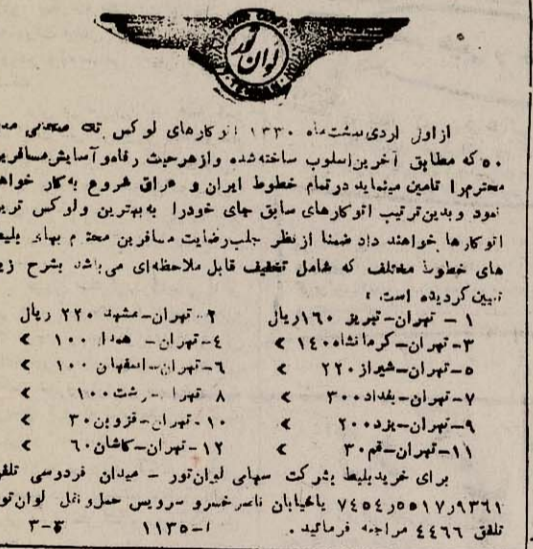 لوان تور
TEHRAN
از اول اردیبهشت ماه ۱۳۳۰ اتوکارهای لوکس تک صندلی مد
۵۰ که مطابق آخرین اسلوب ساخته شده و از هر حیث رفاه و آسایش مسافرین
محترم را تامین مینماید در تمام خطوط ایران و عراق شروع به کار خواهد
نمود و بدین ترتیب اتوکارهای سابق جای خود را به بهترین و لوکس ترین
اتوکارها خواهند داد ضمنا از نظر جلب رضایت مسافرین محترم بهای بلیط
های خطوط مختلف که شامل تخفیف قابل ملاحظه‌ای می‌باشد بشرح زیر
تعیین گردیده است :
۱ – تهران–تبریز ۱۶۰ ریال ۲–تهران–مشهد ۲۲۰ ریال
۳–تهران–کرمانشاه ۱۴۰ > ۴–تهران–همدان ۱۰۰ >
۵–تهران–شیراز ۲۲۰ > ۶–تهران–اصفهان ۱۰۰ >
۷–تهران–بغداد ۳۰۰ > ۸ تهران–رشت ۱۰۰ >
۹–تهران–یزد ۲۰۰ > ۱۰–تهران–قزوین ۳۰ >
۱۱–تهران–قم ۳۰ > ۱۲–تهران–کاشان ۶۰ >
برای خرید بلیط بشرکت سهامی لوان‌تور – میدان فردوسی تلفن
۹۳۶۱ر۵۵۱۷ر۷۴۵۴ یا خیابان ناصر خسرو سرویس حمل و نقل لوان‌تور
تلفن ۴۴۶۶ مراجعه فرمائید .
۱–۱۱۳۵ ۳–۳